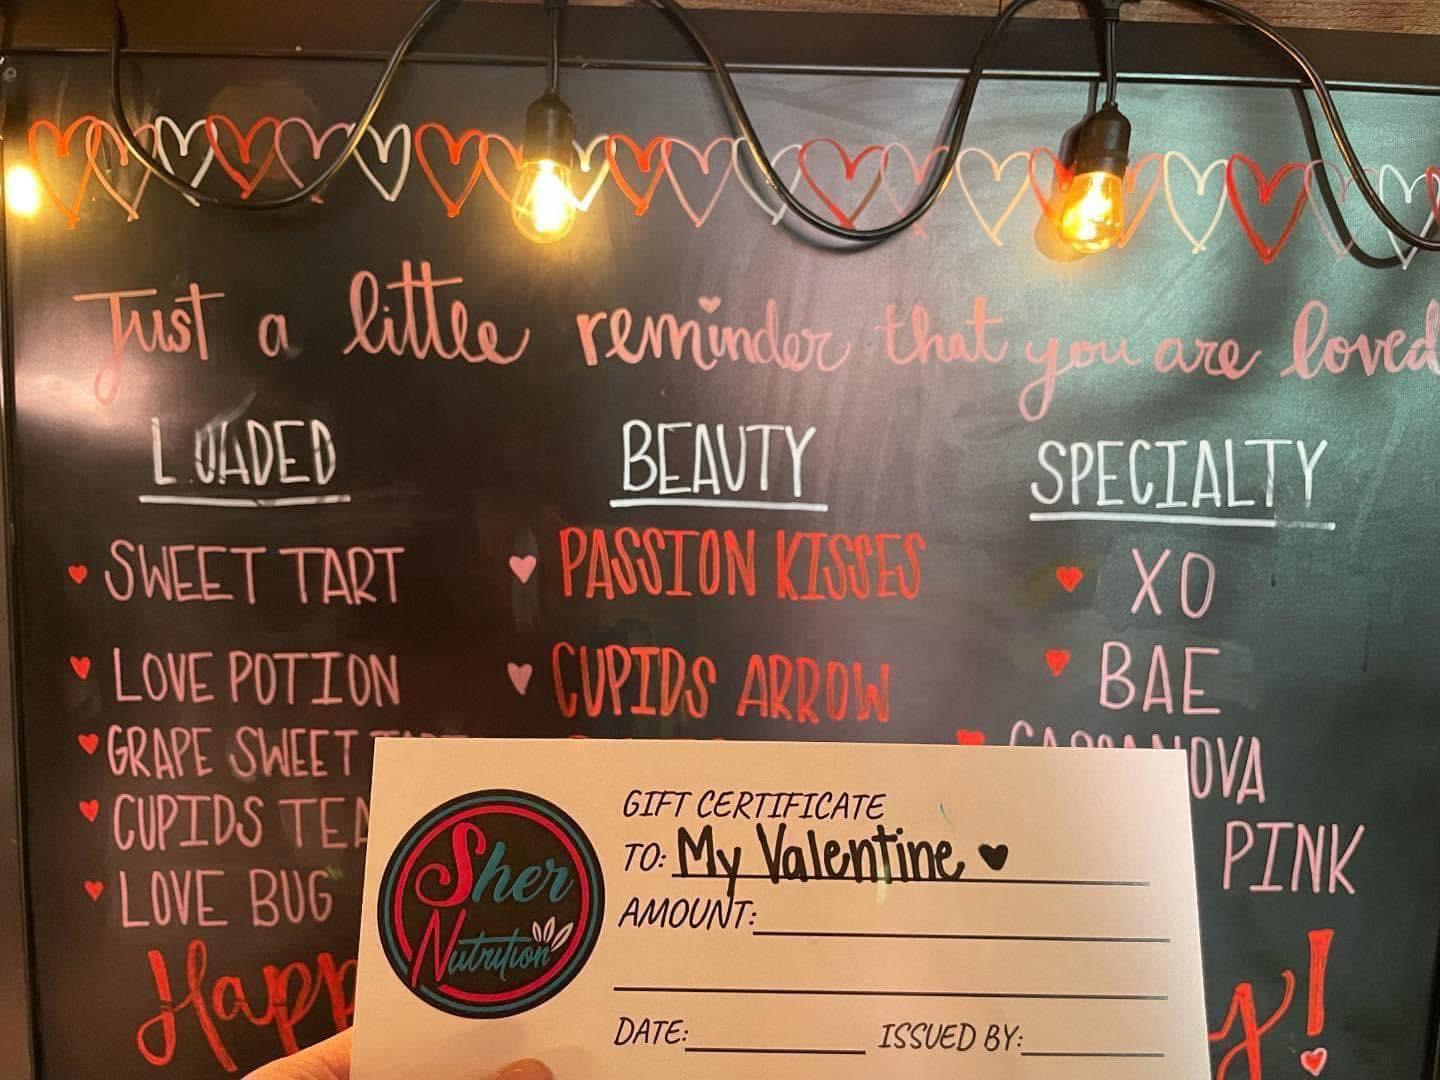 Just a little reminder that you are loved
LOADED
BEAUTY
SPECIALTY
SWEET TART
PASSION KISSES
XO
LOVE POTION
CUPIDS ARROW
BAE
GRAPE SWEET
CUPIDS TEA
PINK
LOVE BUG
Sher
Nutrition
GIFT CERTIFICATE
TO: My Valentine
AMOUNT:
DATE: ISSUED BY: